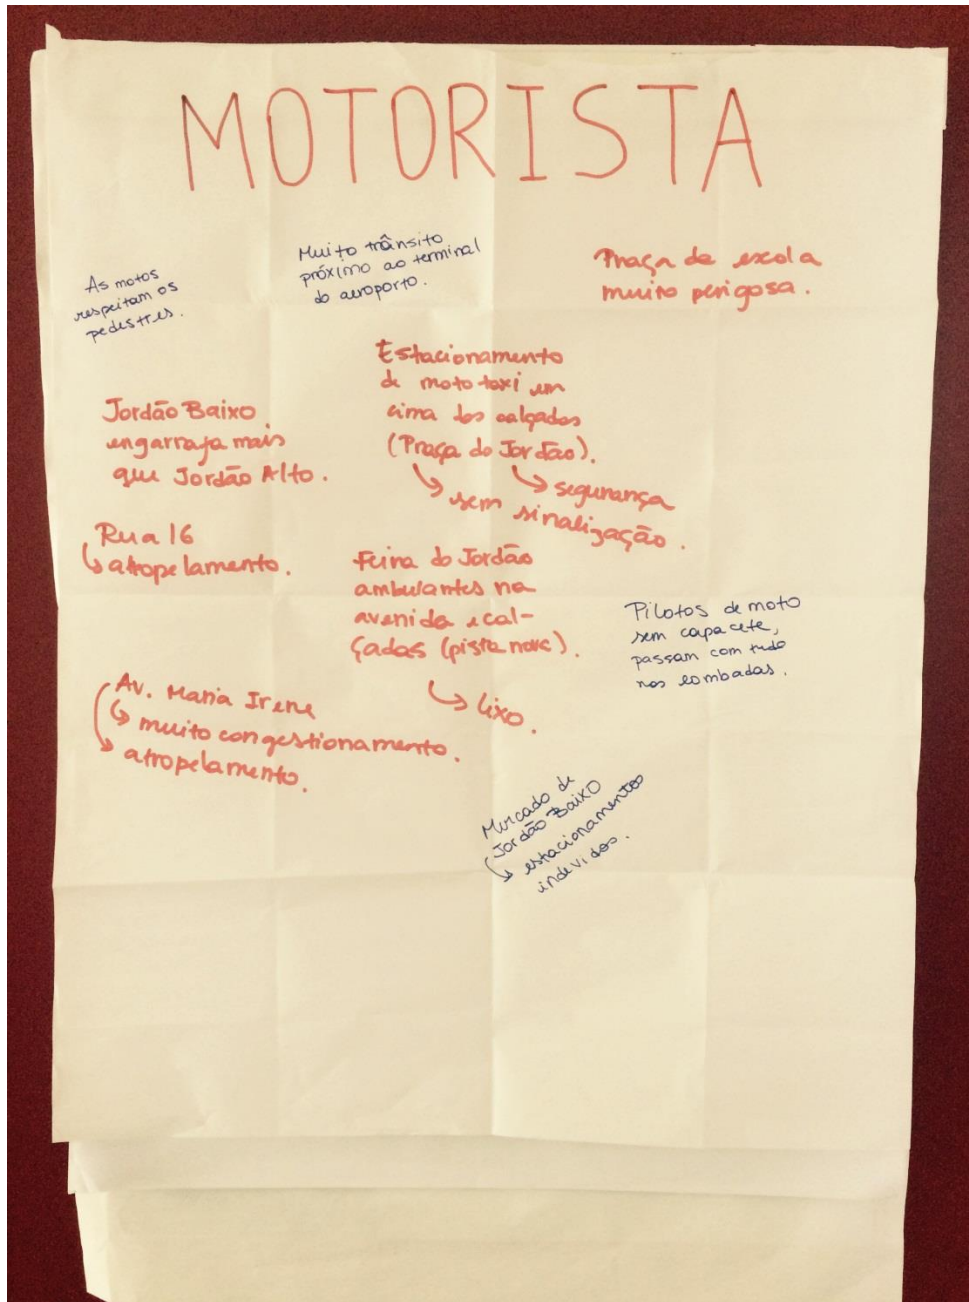 MOTORISTA
As motos
respeitam os
pedestres.
Muito trânsito
próximo ao terminal
do aeroporto.
Praça da escola
muito perigosa.
Jordão Baixo
engarrafa mais
que Jordão Alto.
Estacionamento
de moto taxi em
cima das calçadas
(Praça do Jordão).
↳ segurança
↳ sem sinalização.
Rua 16
↳ atropelamento.
Feira do Jordão
ambulantes na
avenida e cal-
çadas (pista nova).
↳ lixo.
Pilotos de moto
sem capacete,
passam com tudo
nas lombadas.
Av. Maria Irene
↳ muito congestionamento.
↳ atropelamento.
Mercado de
Jordão Baixo
↳ estacionamentos
indevidos.